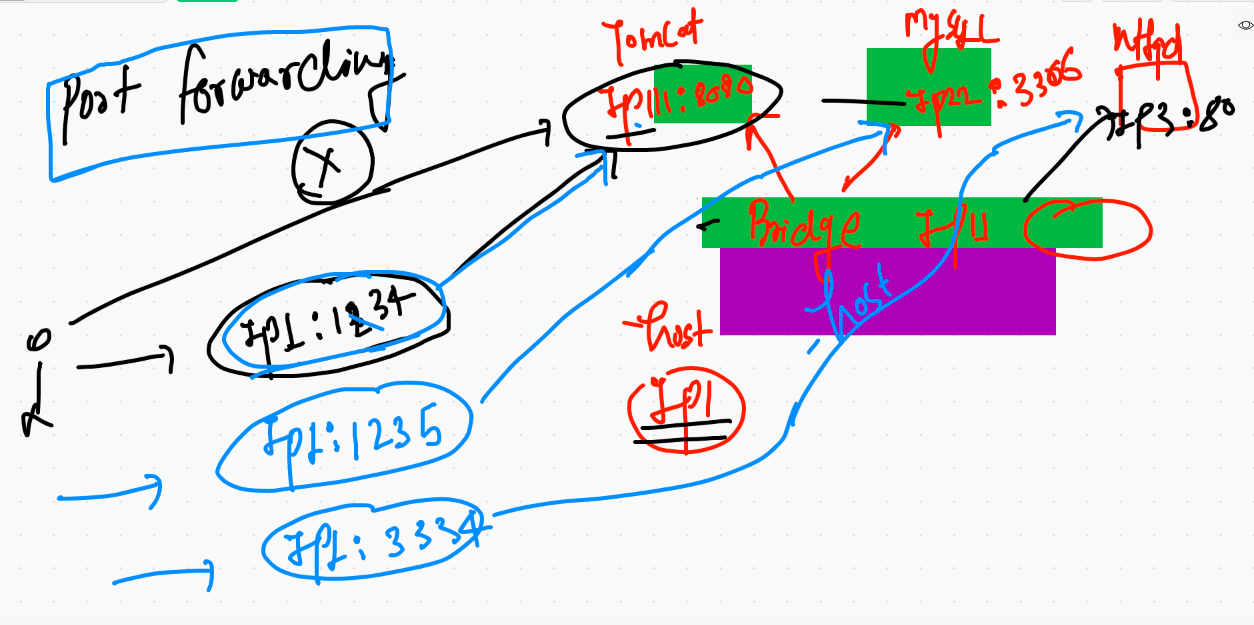 Port forwarding
X
Tomcat
Ip111:8080
MySQL
Ip22 :3306
httpd
Ip3:80
Bridge Ip11
host
host
Ip1
Ip1:1234
Ip1:1235
Ip1:3334